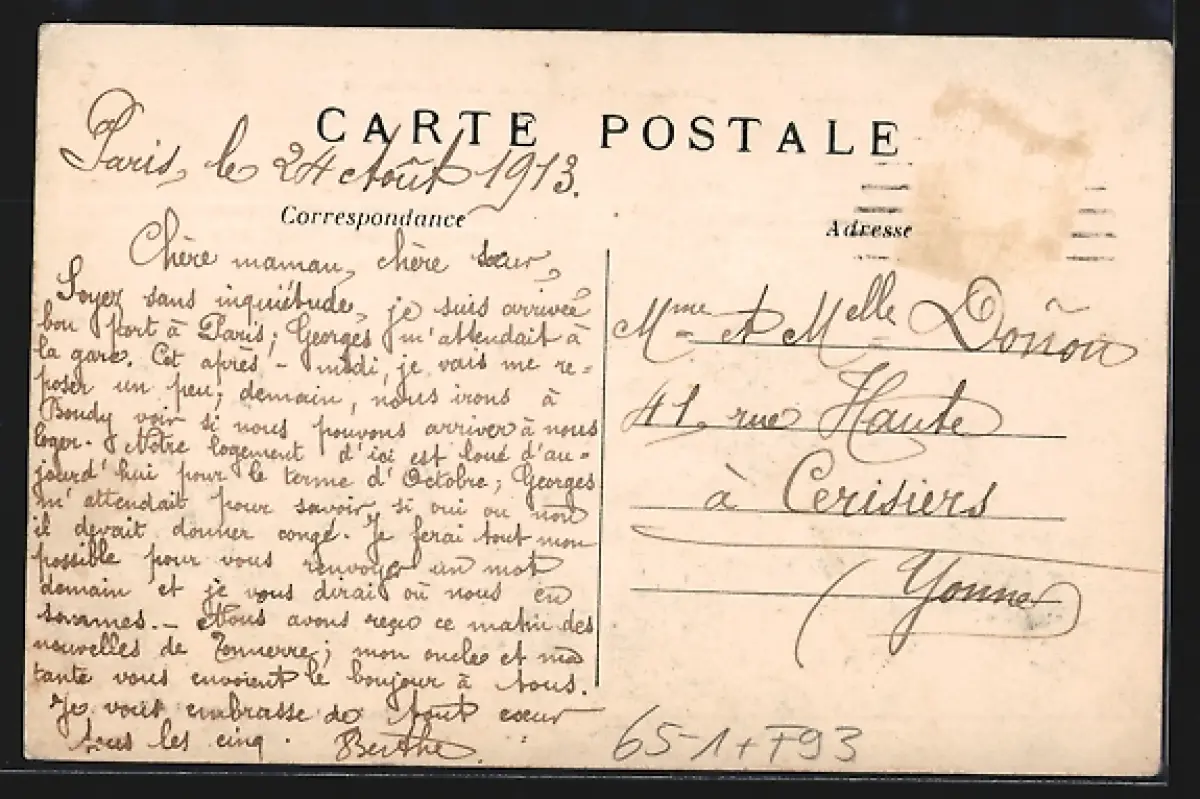 CARTE POSTALE
Paris, le 24 Août 1913.
Correspondance
Chère maman, chère sœur,
Soyez sans inquiétude, je suis arrivée
bon port à Paris; Georges m'attendait à
la gare. Cet après-midi, je vais me re-
poser un peu; demain, nous irons à
Bondy voir si nous pouvons arriver à nous
loger. Notre logement d'ici est loué d'au-
jourd'hui pour le terme d'Octobre; Georges
m'attendait pour savoir si oui ou non
il devait donner congé. Je ferai tout mon
possible pour vous renvoyer un mot
demain et je vous dirai où nous en
sommes. - Nous avons reçu ce matin des
nouvelles de Tonnerre; mon oncle et ma
tante vous envoient le bonjour à tous.
Je vous embrasse de tout cœur
tous les cinq. Berthe.
Adresse
Mme et Melle Doñon
41, rue Haute
à Cerisiers
(Yonne)
65-1+T93